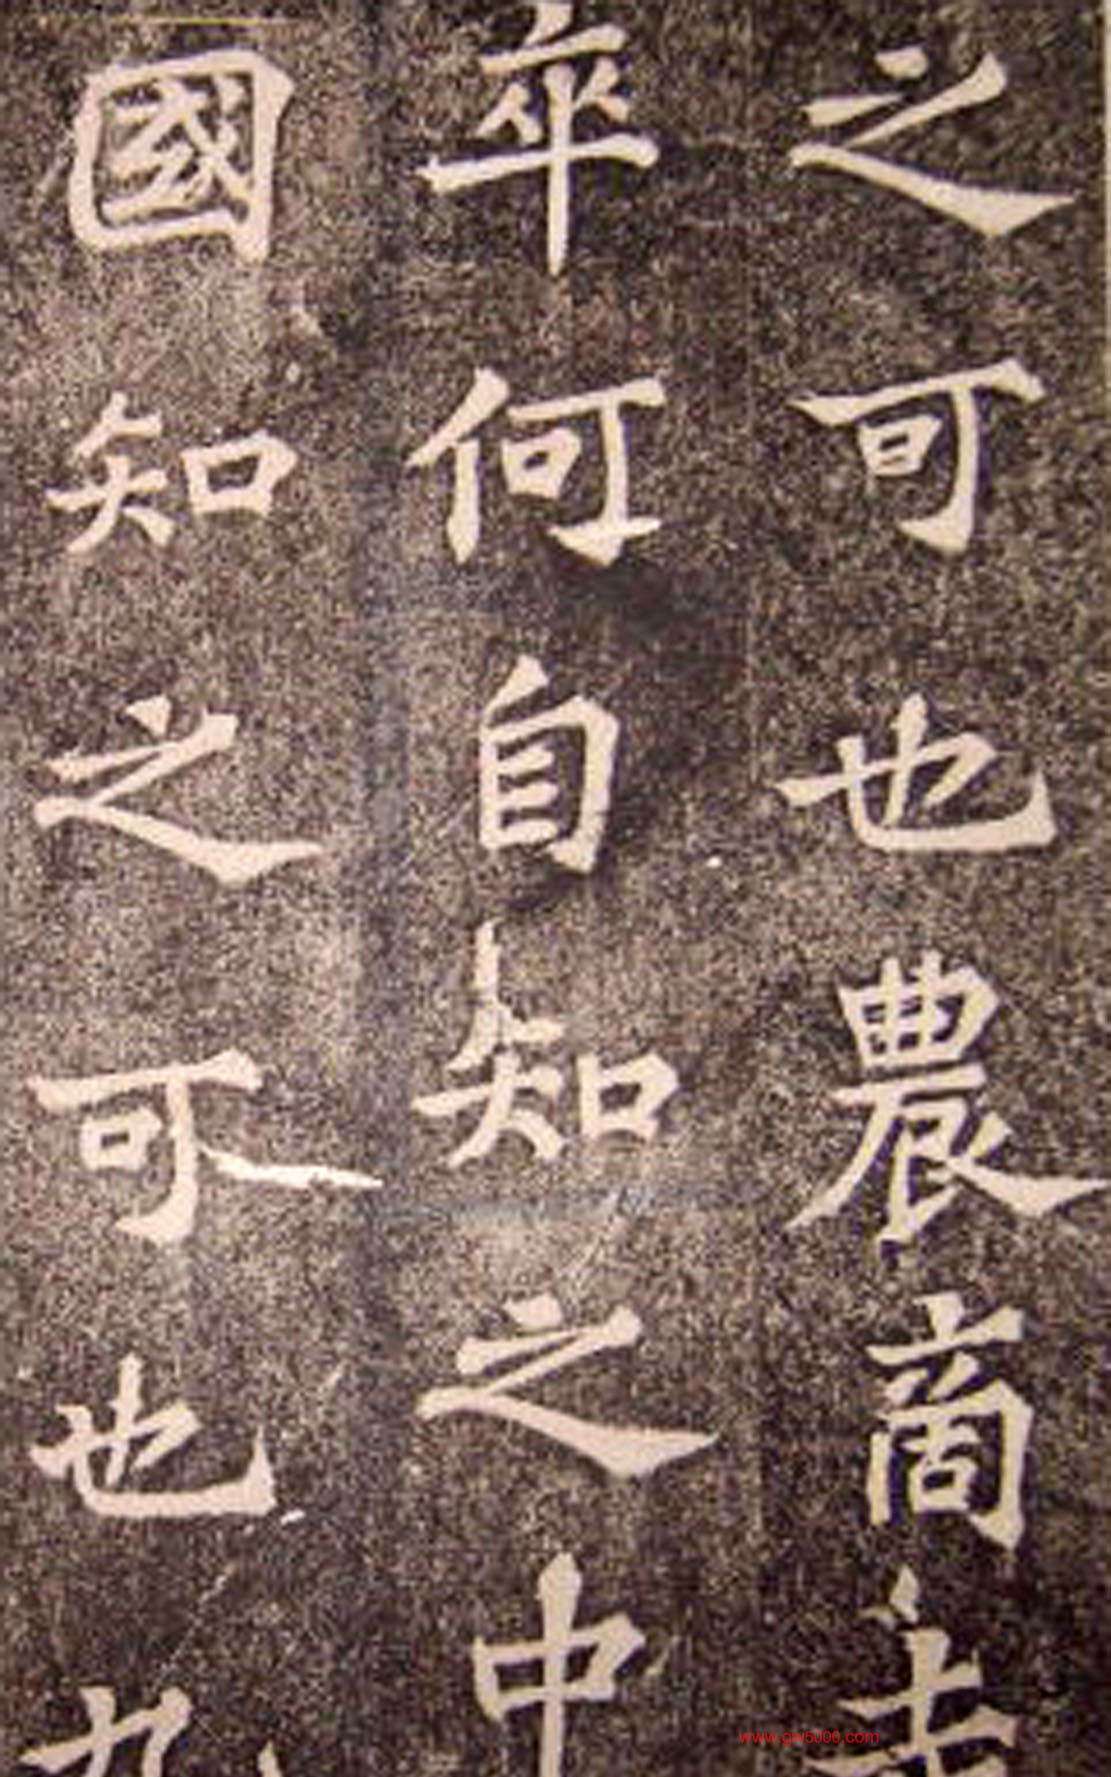 之可也農商走
卒何自知之中
國知之可也九
www.gw5000.com